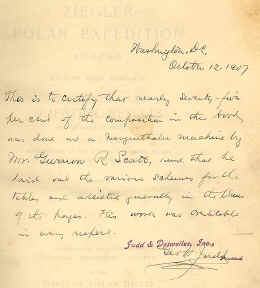 ZIEGLER
POLAR EXPEDITION
Washington, DC,
October 12, 1907
This is to certify that nearly seventy-five
per cent of the composition in this book
was done on a Mergenthaler machine by
Mr. R. Scott, and that he
laid out the various schemes for the
tables and assisted generally in the
of its pages. His work was creditable
in every respect.
Judd & Detweiler, Inc.